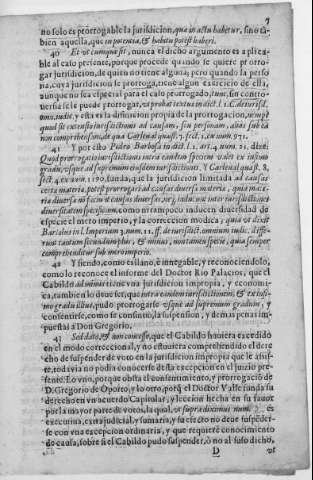 7
no solo es prorrogable la jurisdicion, quæ in actu habetur, sino tã-
bien aquella, que in potencia, & habetu potest haberi.
40 Et vt cumque sit, nunca el dicho argumento es aplica-
ble al caso presente, porque procede quando se quiere prorro-
gar jurisdicion, de quien no tiene alguna; pero quando la perso
na, cuya jurisdicion se prorroga, tiene algun exercicio de ella,
aunque no sea especial para el caso prorrogado, tunc, sin contro-
versia se le puede prorrogar, vt probat textus in dict. l. 1. C. de iurisd.
om. iudic. y esta es la distincion propia de la prorrogacion, nempè
quod sit extensio iurisdictionis ad causam, seu personam, aliàs sub ea
non comprehensas, de qua Cardenal quæst. 7. sect. 1. ex num. 571.
41 Y por esto Pedro Barbosa in dict. l. 1. art. 4. num. 21. dixo:
Quod prorrogatio iurisdictionis intra eandem speciem valet ex infimo
gradu, vsque ad supremum eiusdem iurisdictionis. Y Cardenal quæst. 8.
sect. 4. ex num. 1190. funda, que la jurisdicion limitada ad causas
certæ materiæ, potest prorrogari ad causas diversæ materiæ, quia mate-
ria diversa non facit vt causas diversas, nec inducunt inter iurisdictiones
diversitatem specificam, como ni tampoco inducen diversidad de
especie el mero imperio, y la correccion modica, quia vt dixit
Bartulus in l. Imperium 3. num. 11. ff. de iurisdict. omnium iudic. diffe-
runt tantum secundum plus, & minus, non tamen specie, quia semper
comprehenditur sub mero imperio.
42 Y siendo, como es llano, è innegable, y reconociendolo,
como lo reconoce el informe del Doctor Rio Palacios, que el
Cabildo ad minus tiene vna jurisdicion impropia, y economi-
ca, tambien lo deue ser, que intra eandem iurisdictionem, & ex infi-
mo gradu illius, pudo prorrogarse vsque ad supremum gradum, y
consentirse, como se consintiò, la suspension, y demàs penas im-
puestas à Don Gregorio.
43 Sed dato, & non concesso, que el Cabildo huuiera excedido
en el modo correccional, y no estuuiera comprehendido el dere
cho de suspender de voto en la jurisdicion impropia que le assis-
te, todavia no podia conocerse desta excepcion en el juizio pre-
sente. Lo vno, porque obsta el consentimiento, y prorrogaciò de
D. Gregorio de Oporto, y lo otro, porq̃ el Doctor Valle funda su
derecho en vn acuerdo Capitular, y leccion hecha en su fauor
por la mayor parte de votos, la qual, vt supra diximus num. es
executiua, extrajudicial, y sumaria, y su efecto no deue suspéder-
se con vna excepcion ordinaria, y que requiere conocimiento
de causa, sobre si el Cabildo pudo suspender, ò no al suso dicho,
D vt